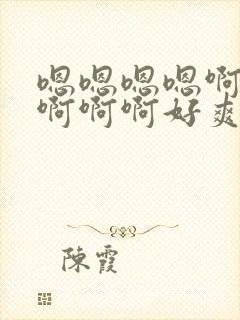 嗯嗯嗯嗯啊
啊啊啊好爽
陳霞